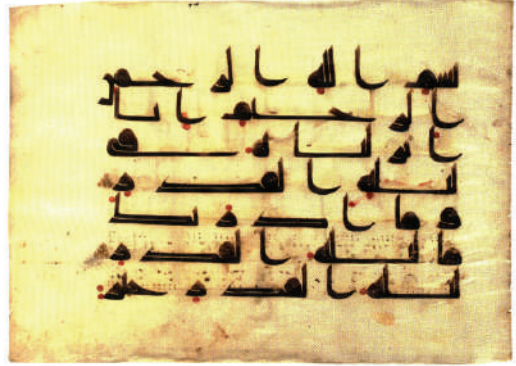 بسم الله الرحمن
الرحيم انا
انزلنه في
ليلة القدر
وما ادريك
ما ليلة القدر
ليلة القدر خير